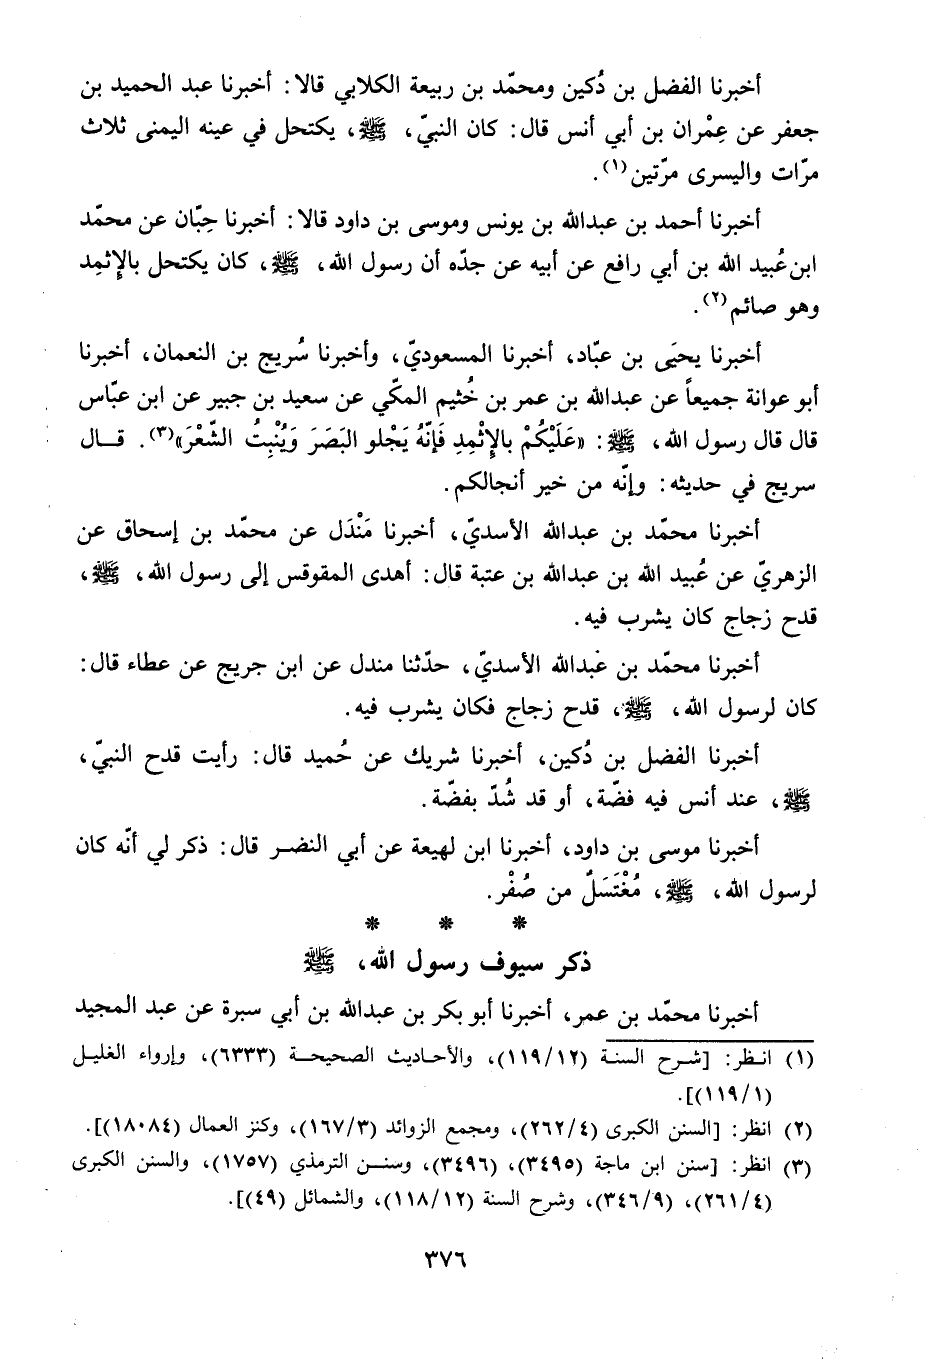 أخبرنا الفضل بن دُكين ومحمّد بن ربيعة الكلابي قالا: أخبرنا عبد الحميد بن
جعفر عن عِمْران بن أبي أنس قال: كان النبيّ، ﷺ، يكتحل في عينه اليمنى ثلاث
مرّات واليسرى مرّتين(١).
أخبرنا أحمد بن عبدالله بن يونس وموسى بن داود قالا: أخبرنا حِبّان عن محمّد
ابن عُبيد الله بن أبي رافع عن أبيه عن جدّه أن رسول الله، ﷺ، كان يكتحل بالإثمِد
وهو صائم(٢).
أخبرنا يحيَى بن عبّاد، أخبرنا المسعوديّ، وأخبرنا سُريج بن النعمان، أخبرنا
أبو عوانة جميعاً عن عبدالله بن عمر بن خُثيم المكّي عن سعيد بن جبير عن ابن عبّاس
قال قال رسول الله، ﷺ: «عَلَيْكُمْ بالإثْمِدِ فَإنّهُ يَجْلو البَصَرَ وَيُنْبِتُ الشّعْرَ»(٣). قــال
سريج في حديثه: وإنّه من خير أنجالكم.
أخبرنا محمّد بن عبدالله الأسديّ، أخبرنا مَنْدَل عن محمّد بن إسحاق عن
الزهريّ عن عُبيد الله بن عبدالله بن عتبة قال: أهدى المقوقس إلى رسول الله، ﷺ،
قدح زجاج كان يشرب فيه.
أخبرنا محمّد بن عبدالله الأسديّ، حدّثنا مندل عن ابن جريج عن عطاء قال:
كان لرسول الله، ﷺ، قدح زجاج فكان يشرب فيه.
أخبرنا الفضل بن دُكين، أخبرنا شريك عن حُميد قال: رأيت قدح النبيّ،
ﷺ، عند أنس فيه فضّة، أو قد شُدّ بفضّة.
أخبرنا موسى بن داود، أخبرنا ابن لهيعة عن أبي النضـر قال: ذكر لي أنّه كان
لرسول الله، ﷺ، مُغْتَسَلٌ من صُفْر.
* * *
ذكر سيوف رسول الله، ﷺ
أخبرنا محمّد بن عمر، أخبرنا أبو بكر بن عبدالله بن أبي سبرة عن عبد المجيد
(١) انـظر: [شـرح السنـة (١١٩/١٢)، والأحـاديث الصحيحـة (٦٣٣٣)، وإرواء الغليـل
(١١٩/١)].
(٢) انظر: [السنن الكبرى (٢٦٢/٤)، ومجمع الزوائد (١٦٧/٣)، وكنز العمال (١٨٠٨٤)].
(٣) انظر: [سنن ابن ماجة (٣٤٩٥)، (٣٤٩٦)، وسنـن الترمذي (١٧٥٧)، والسنن الكبرى
(٢٦١/٤)، (٣٤٦/٩)، وشرح السنة (١١٨/١٢)، والشمائل (٤٩)].
٣٧٦